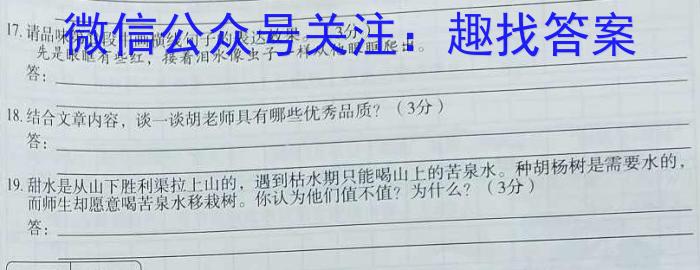 微信公众号关注：趣找答案
17.请品味
先是眼眶有些红，接着泪水像虫子一样从他眼眶爬出。
答：
18.结合文章内容，谈一谈胡老师具有哪些优秀品质？（3分）
答：
19.甜水是从山下胜利渠拉上山的，遇到枯水期只能喝山上的苦泉水。种胡杨树是需要水的，
而师生却愿意喝苦泉水移栽树。你认为他们值不值？为什么？（3分）
答：